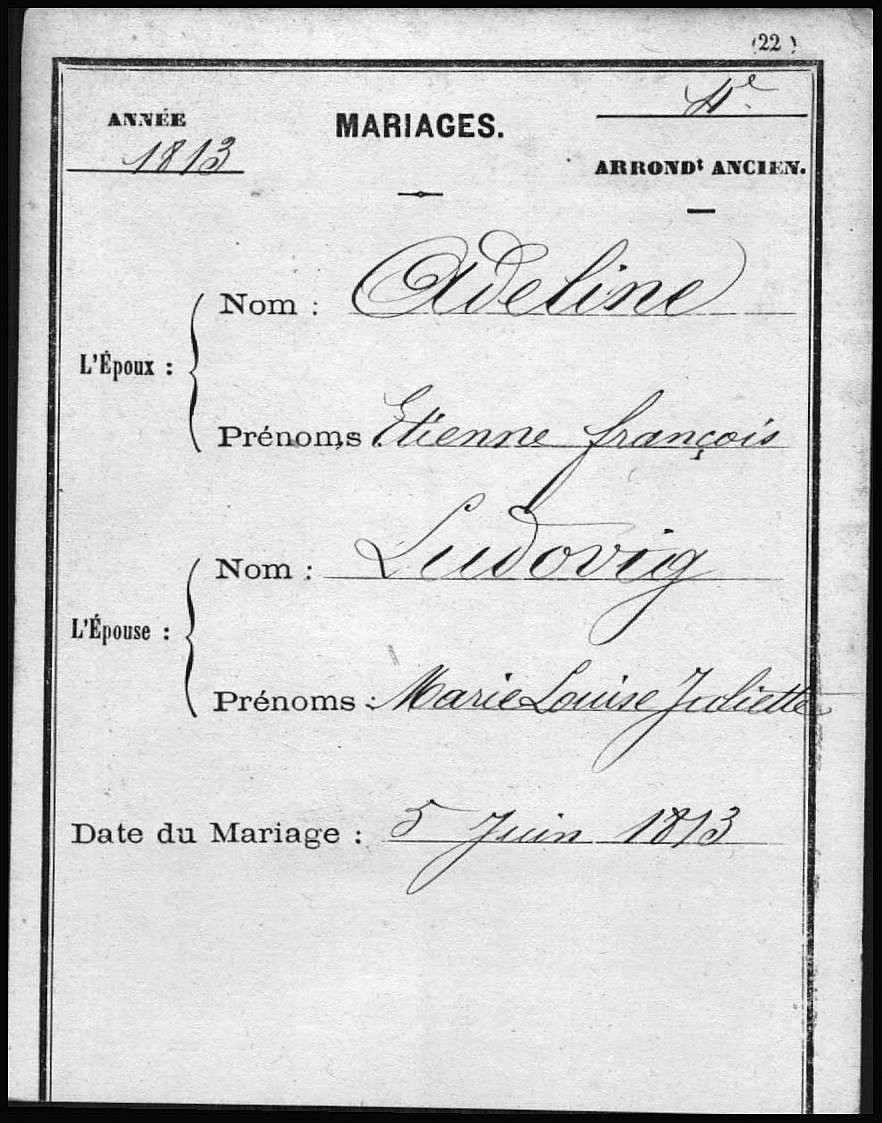 (22)
ANNÉE
1813
MARIAGES.
4e
ARRONDt ANCIEN.
L'Époux :
Nom : Adeline
Prénoms Etienne françois
L'Épouse :
Nom : Ludovig
Prénoms : Marie Louise Juliette
Date du Mariage : 5 Juin 1813